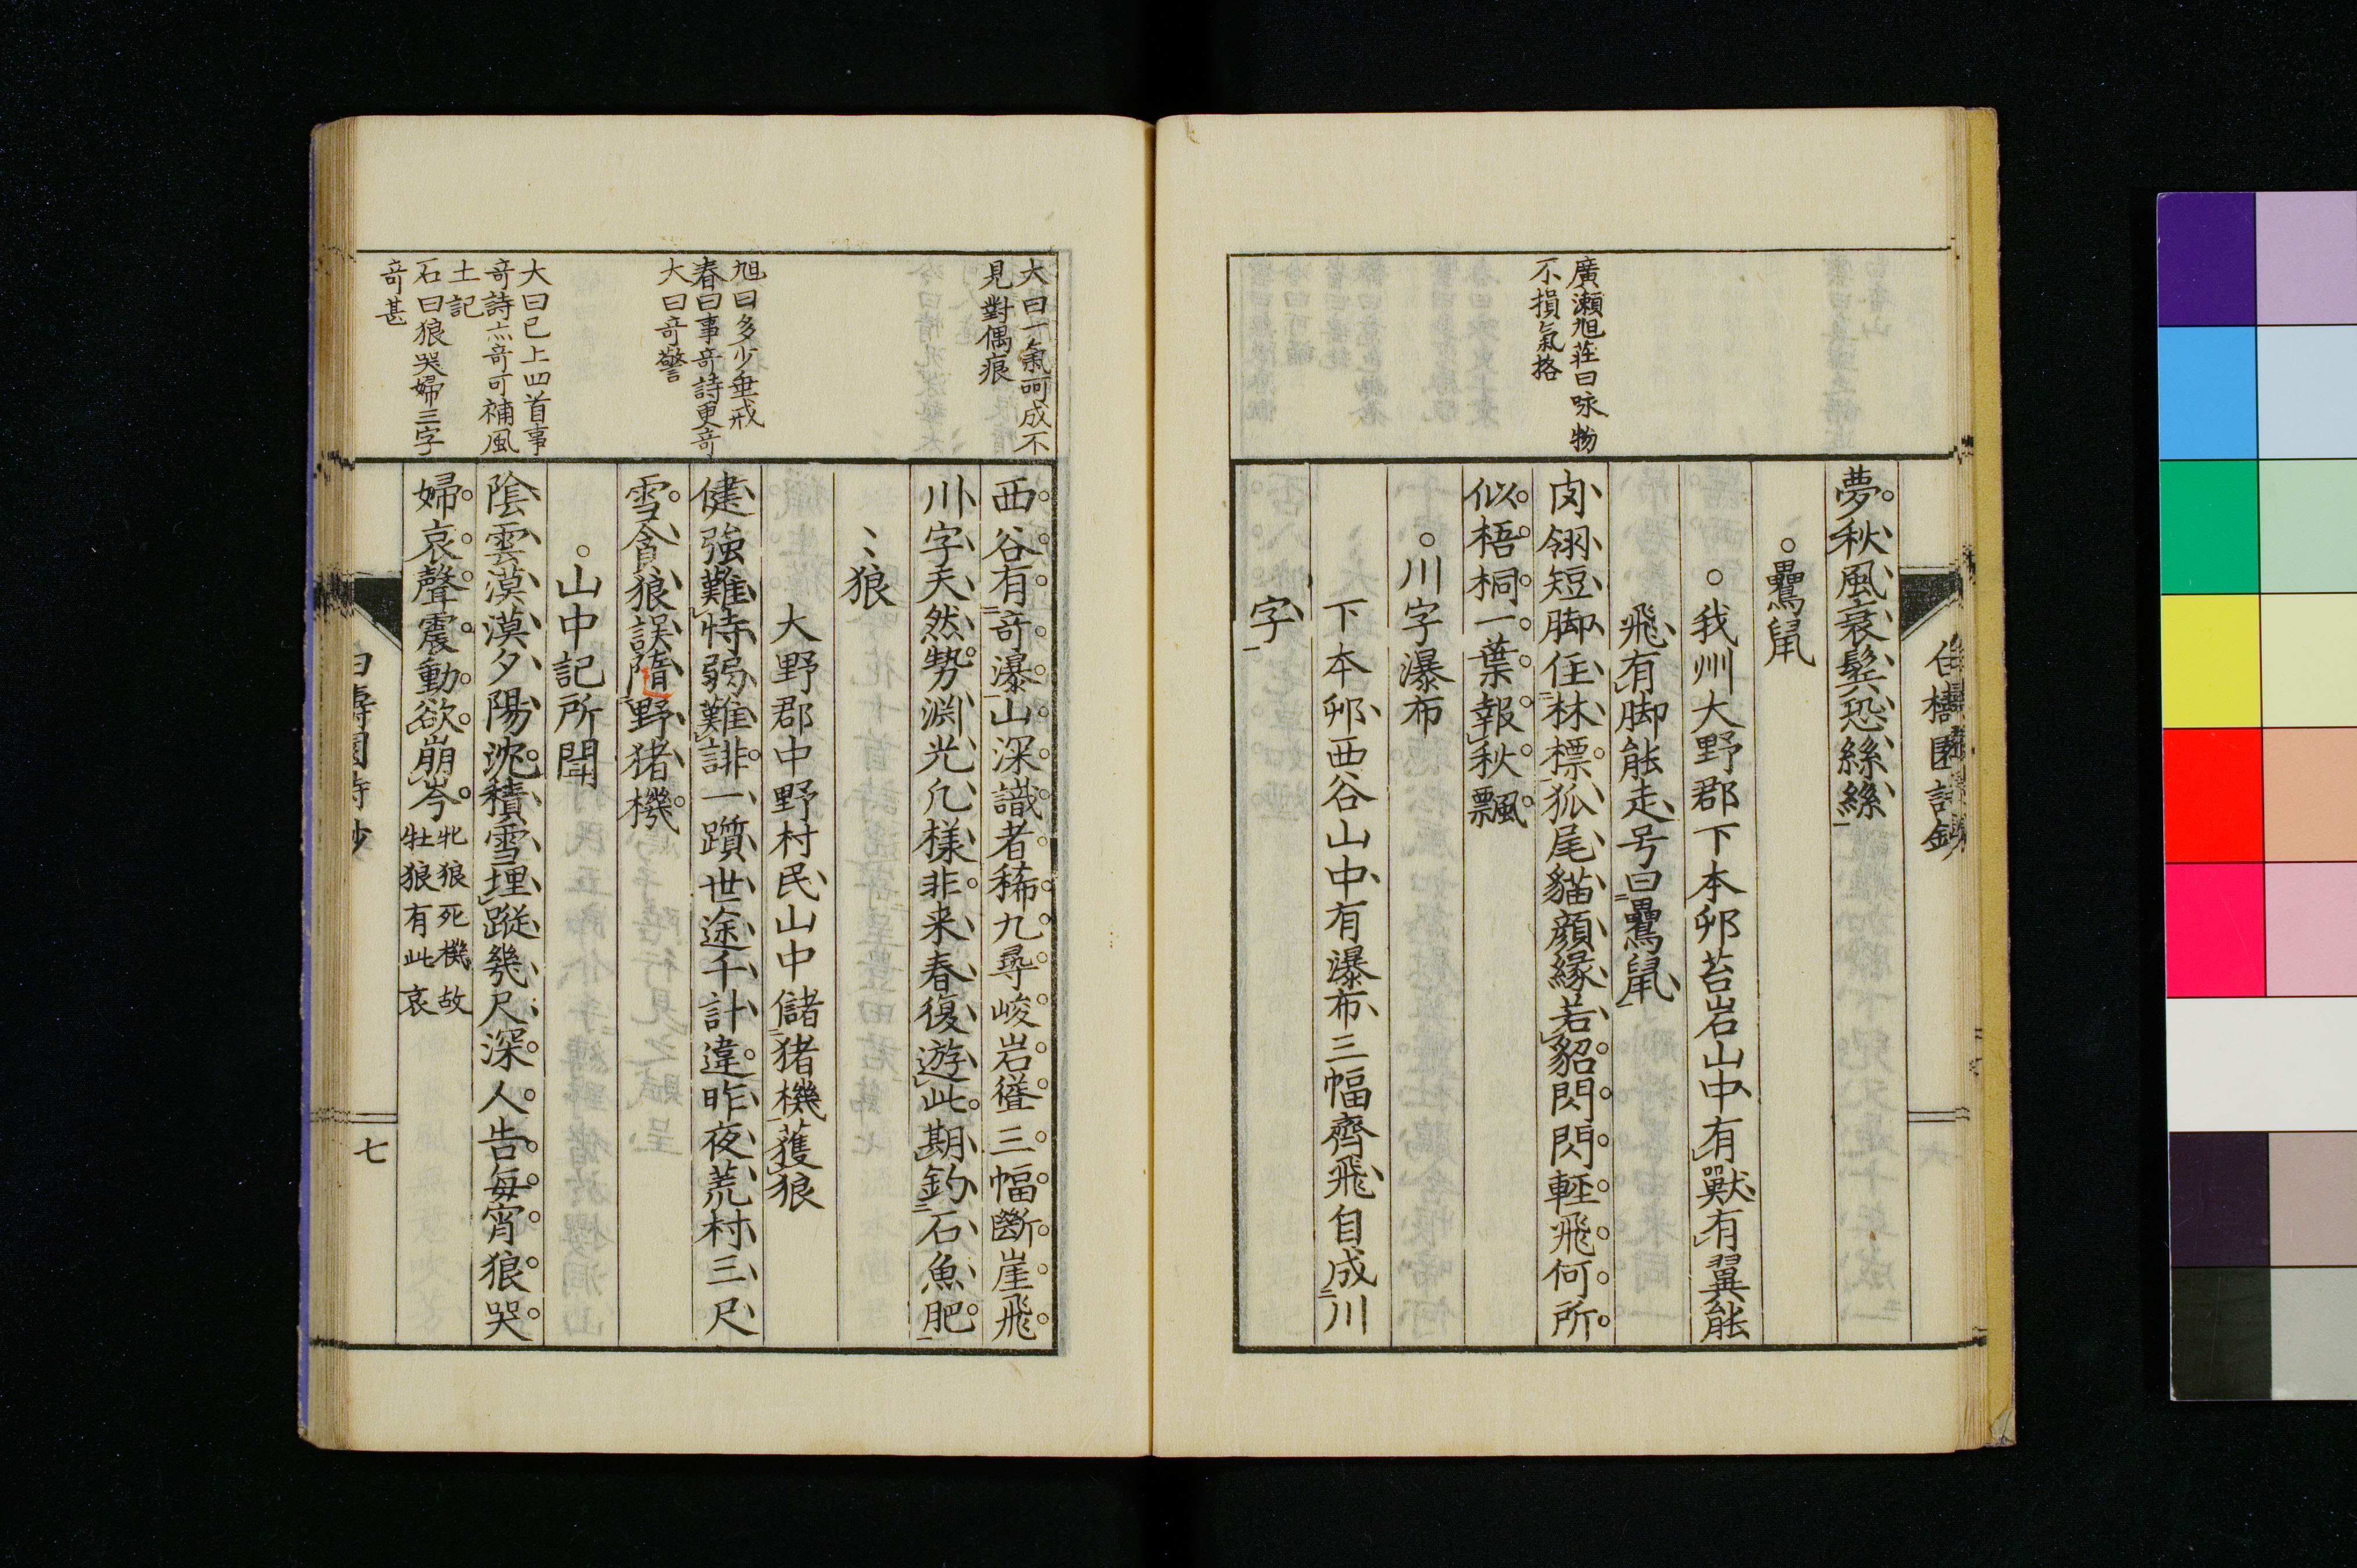 夢秋風衰鬂恐絲絲
鸓鼠
我州大野郡下本卯苔岩山中有獸有翼能
飛有脚能走号曰鸓鼠
肉翎短脚住林標狐尾貓顔緣若貂閃閃輕飛何所
似梧桐一葉報秋飄
廣瀨旭莊曰咏物
不損氣格
川字瀑布
下本卯西谷山中有瀑布三幅齊飛自成川
字
西谷有奇瀑山深識者稀九尋峻岩聳三幅斷崖飛
川字天然勢淵光凢樣非来春復遊此期釣石魚肥
大曰一氣呵成不
見對偶痕
狼
大野郡中野村民山中儲猪機獲狼
健強難恃弱難誹一躓世途千計違昨夜荒村三尺
雪貪狼誤墮野猪機
旭曰多少垂戒
春曰事竒詩更竒
大曰竒警
山中記所聞
陰雲漠漠夕陽沈積雪埋蹤幾尺深人告每宵狼哭
婦哀聲震動欲崩岑
牝狼死機故
牡狼有此哀
大曰已上四首事
竒詩亦竒可補風
土記
石曰狼哭婦三字
竒甚
七